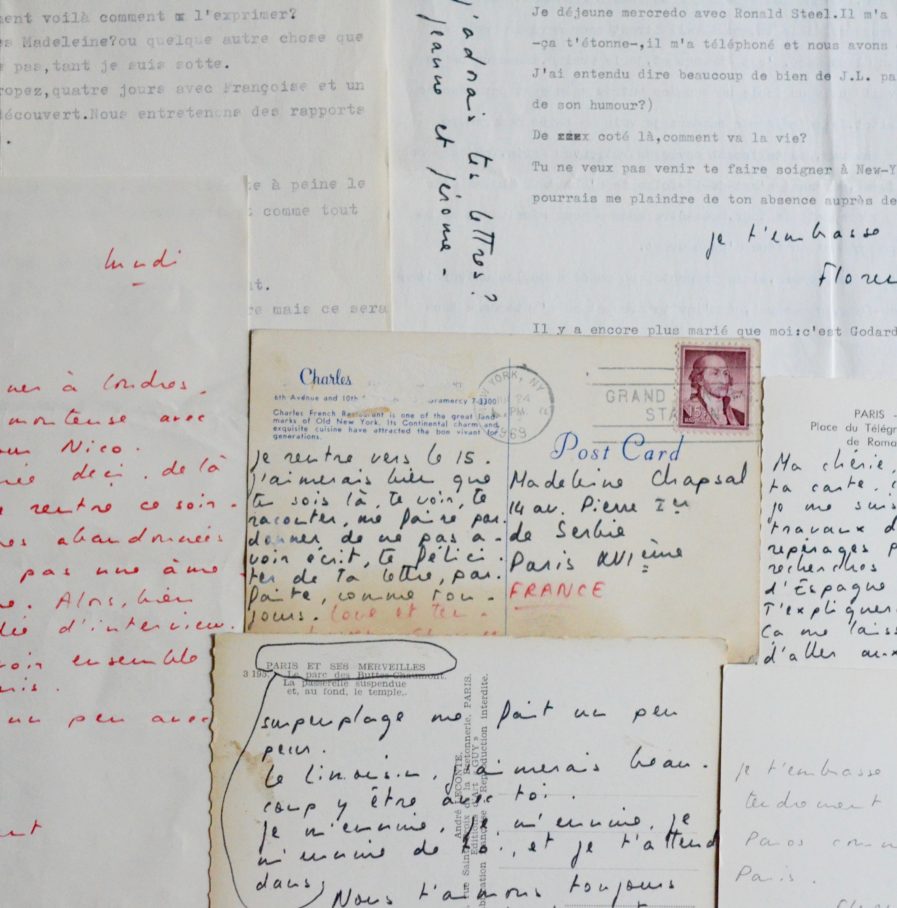 ment voilà comment x l'exprimer?
Madeleine?ou quelque autre chose que
pas,tant je suis sotte.
ropez,quatre jours avec Françoise et un
découvert.Nous entretenons des rapports
à peine le
comme tout
mais ce sera
j'adorais tes lettres?
Jeanne et Jérôme -
Je déjeune mercredo avec Ronald Steel.Il m'a
-ça t'étonne-,il m'a téléphoné et nous avons
J'ai entendu dire beaucoup de bien de J.L. pa
de son humour?)
De xxxx coté là,comment va la vie?
Tu ne veux pas venir te faire soigner à New-Y
pourrais me plaindre de ton absence auprès de
je t'embrasse
Floren
Il y a encore plus marié que moi:c'est Godard
lundi
ner à Londres.
avec
Nico.
deçi, de là
rentre ce soir.
abandonnées
pas une âme
Alors, bien
d'interview.
voir ensemble
un peu avec
Charles
6th Avenue and 10th
Gramercy 7-3300
Charles French Restaurant is one of the great land-
marks of Old New York. Its Continental charm and
exquisite cuisine have attracted the bon vivant for
generations.
NEW YORK, N.Y.
24
PM
1969
GRAND
STA
15c
Post Card
je rentre vers le 15.
j'aimerais bien que
tu sois là, te voir, te
raconter, me faire par-
donner de ne pas a-
voir écrit, te félici-
ter de ta lettre, par-
faite, comme tou-
jours. Love et ten-
Madeleine Chapsal
14 av. Pierre Ier
de Serbie
Paris XVIème
FRANCE
PARIS -
Place du Télégr
de Roma
Ma chérie,
ta carte,
je me suis
travaux d
repérages p
recherches
d'Espagne
T'expliquer
Ça me laiss
d'aller aux
PARIS ET SES MERVEILLES
3 195. - Le parc des Buttes-Chaumont.
La passerelle suspendue
et, au fond, le temple.
surpeuplage me fait un peu
peur.
Le limousin, j'aimerais beau-
coup y être avec toi.
Je m'ennuie, je m'ennuie, je
m'ennuie de toi, et je t'attend
dans,
Nous t'aimons toujours
André LECONTE,
rue Sainte-Croix de la Bretonnerie, PARIS.
Editions d'art "GUY"
Reproduction interdite.
je t'embrasse
tendrement
Paris.